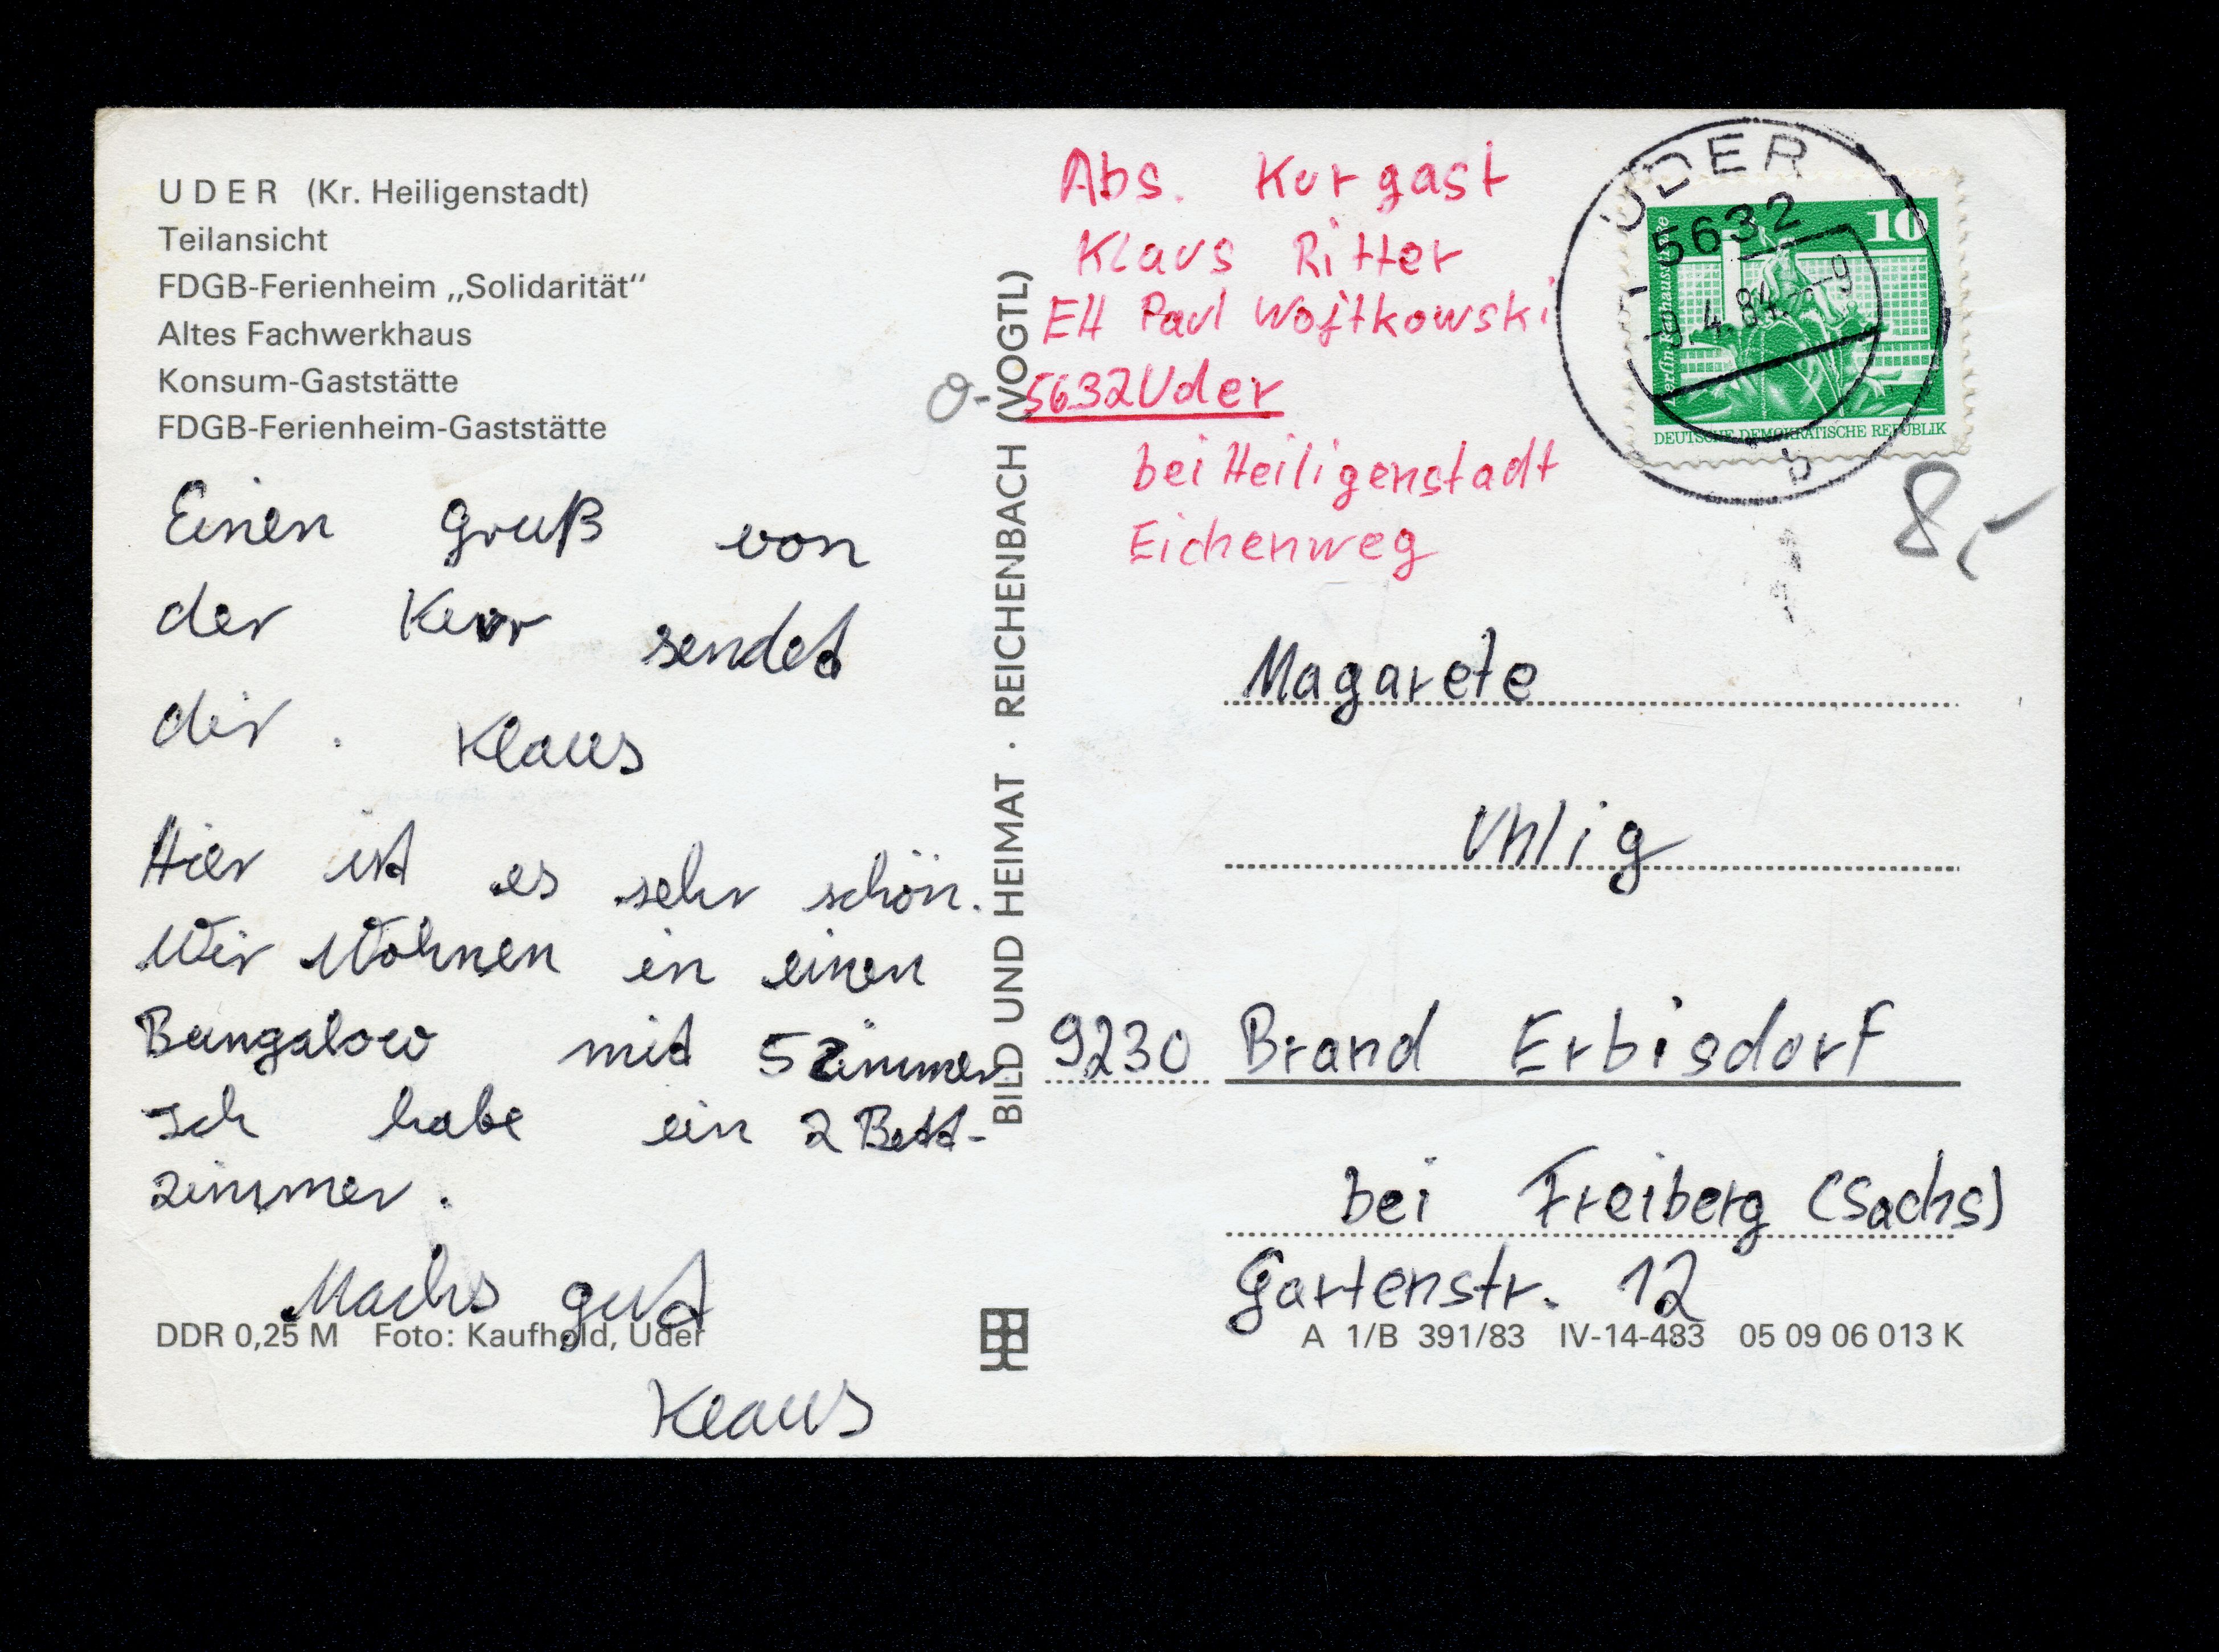 UDER (Kr. Heiligenstadt)
Teilansicht
FDGB-Ferienheim „Solidarität“
Altes Fachwerkhaus
Konsum-Gaststätte
FDGB-Ferienheim-Gaststätte
Einen Gruß von
der Kur sendet
dir. Klaus
Hier ist es sehr schön.
Wir Wohnen in einen
Bungalow mit 5 Zimmer
Ich habe ein 2 Bett-
zimmer.
Machs gut
DDR 0,25 M Foto: Kaufhold, Uder
Klaus
BILD UND HEIMAT · REICHENBACH (VOGTL)
Abs. Kurgast
Klaus Ritter
EH Paul Wojtkowski
O- 5632 Uder
bei Heiligenstadt
Eichenweg
UDER
5632
4. 84
b
10
DEUTSCHE DEMOKRATISCHE REPUBLIK
8,-
Magarete
Uhlig
9230 Brand Erbisdorf
bei Freiberg (Sachs)
Gartenstr. 12
A 1/B 391/83 IV-14-483 05 09 06 013 K